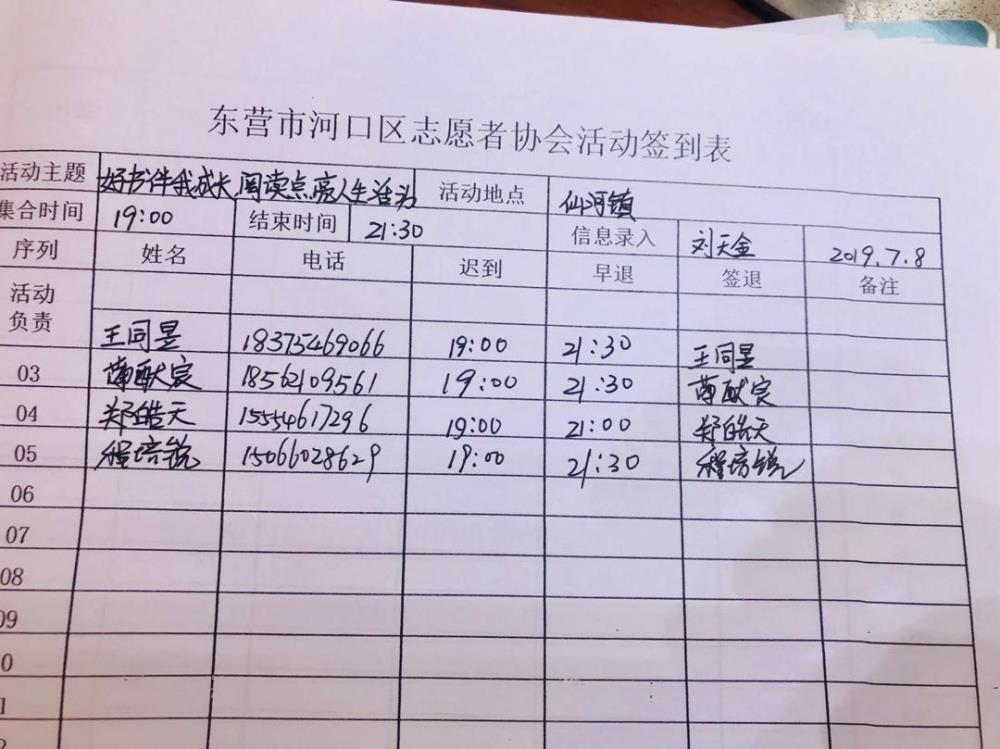 东营市河口区志愿者协会活动签到表
活动主题 好书伴我成长,阅读点亮人生活动 活动地点 仙河镇
集合时间 19:00 结束时间 21:30 信息录入 刘天金 2019.7.8
序列 姓名 电话 迟到 早退 签退 备注
活动
负责
王同昱 18375469066 19:00 21:30 王同昱
03 薛猷宸 18562109561 19:00 21:30 薛猷宸
04 郑皓天 15554617296 19:00 21:00 郑皓天
05 程培锐 15066028629 19:00 21:30 程培锐
06
07
08
09
0
1
2